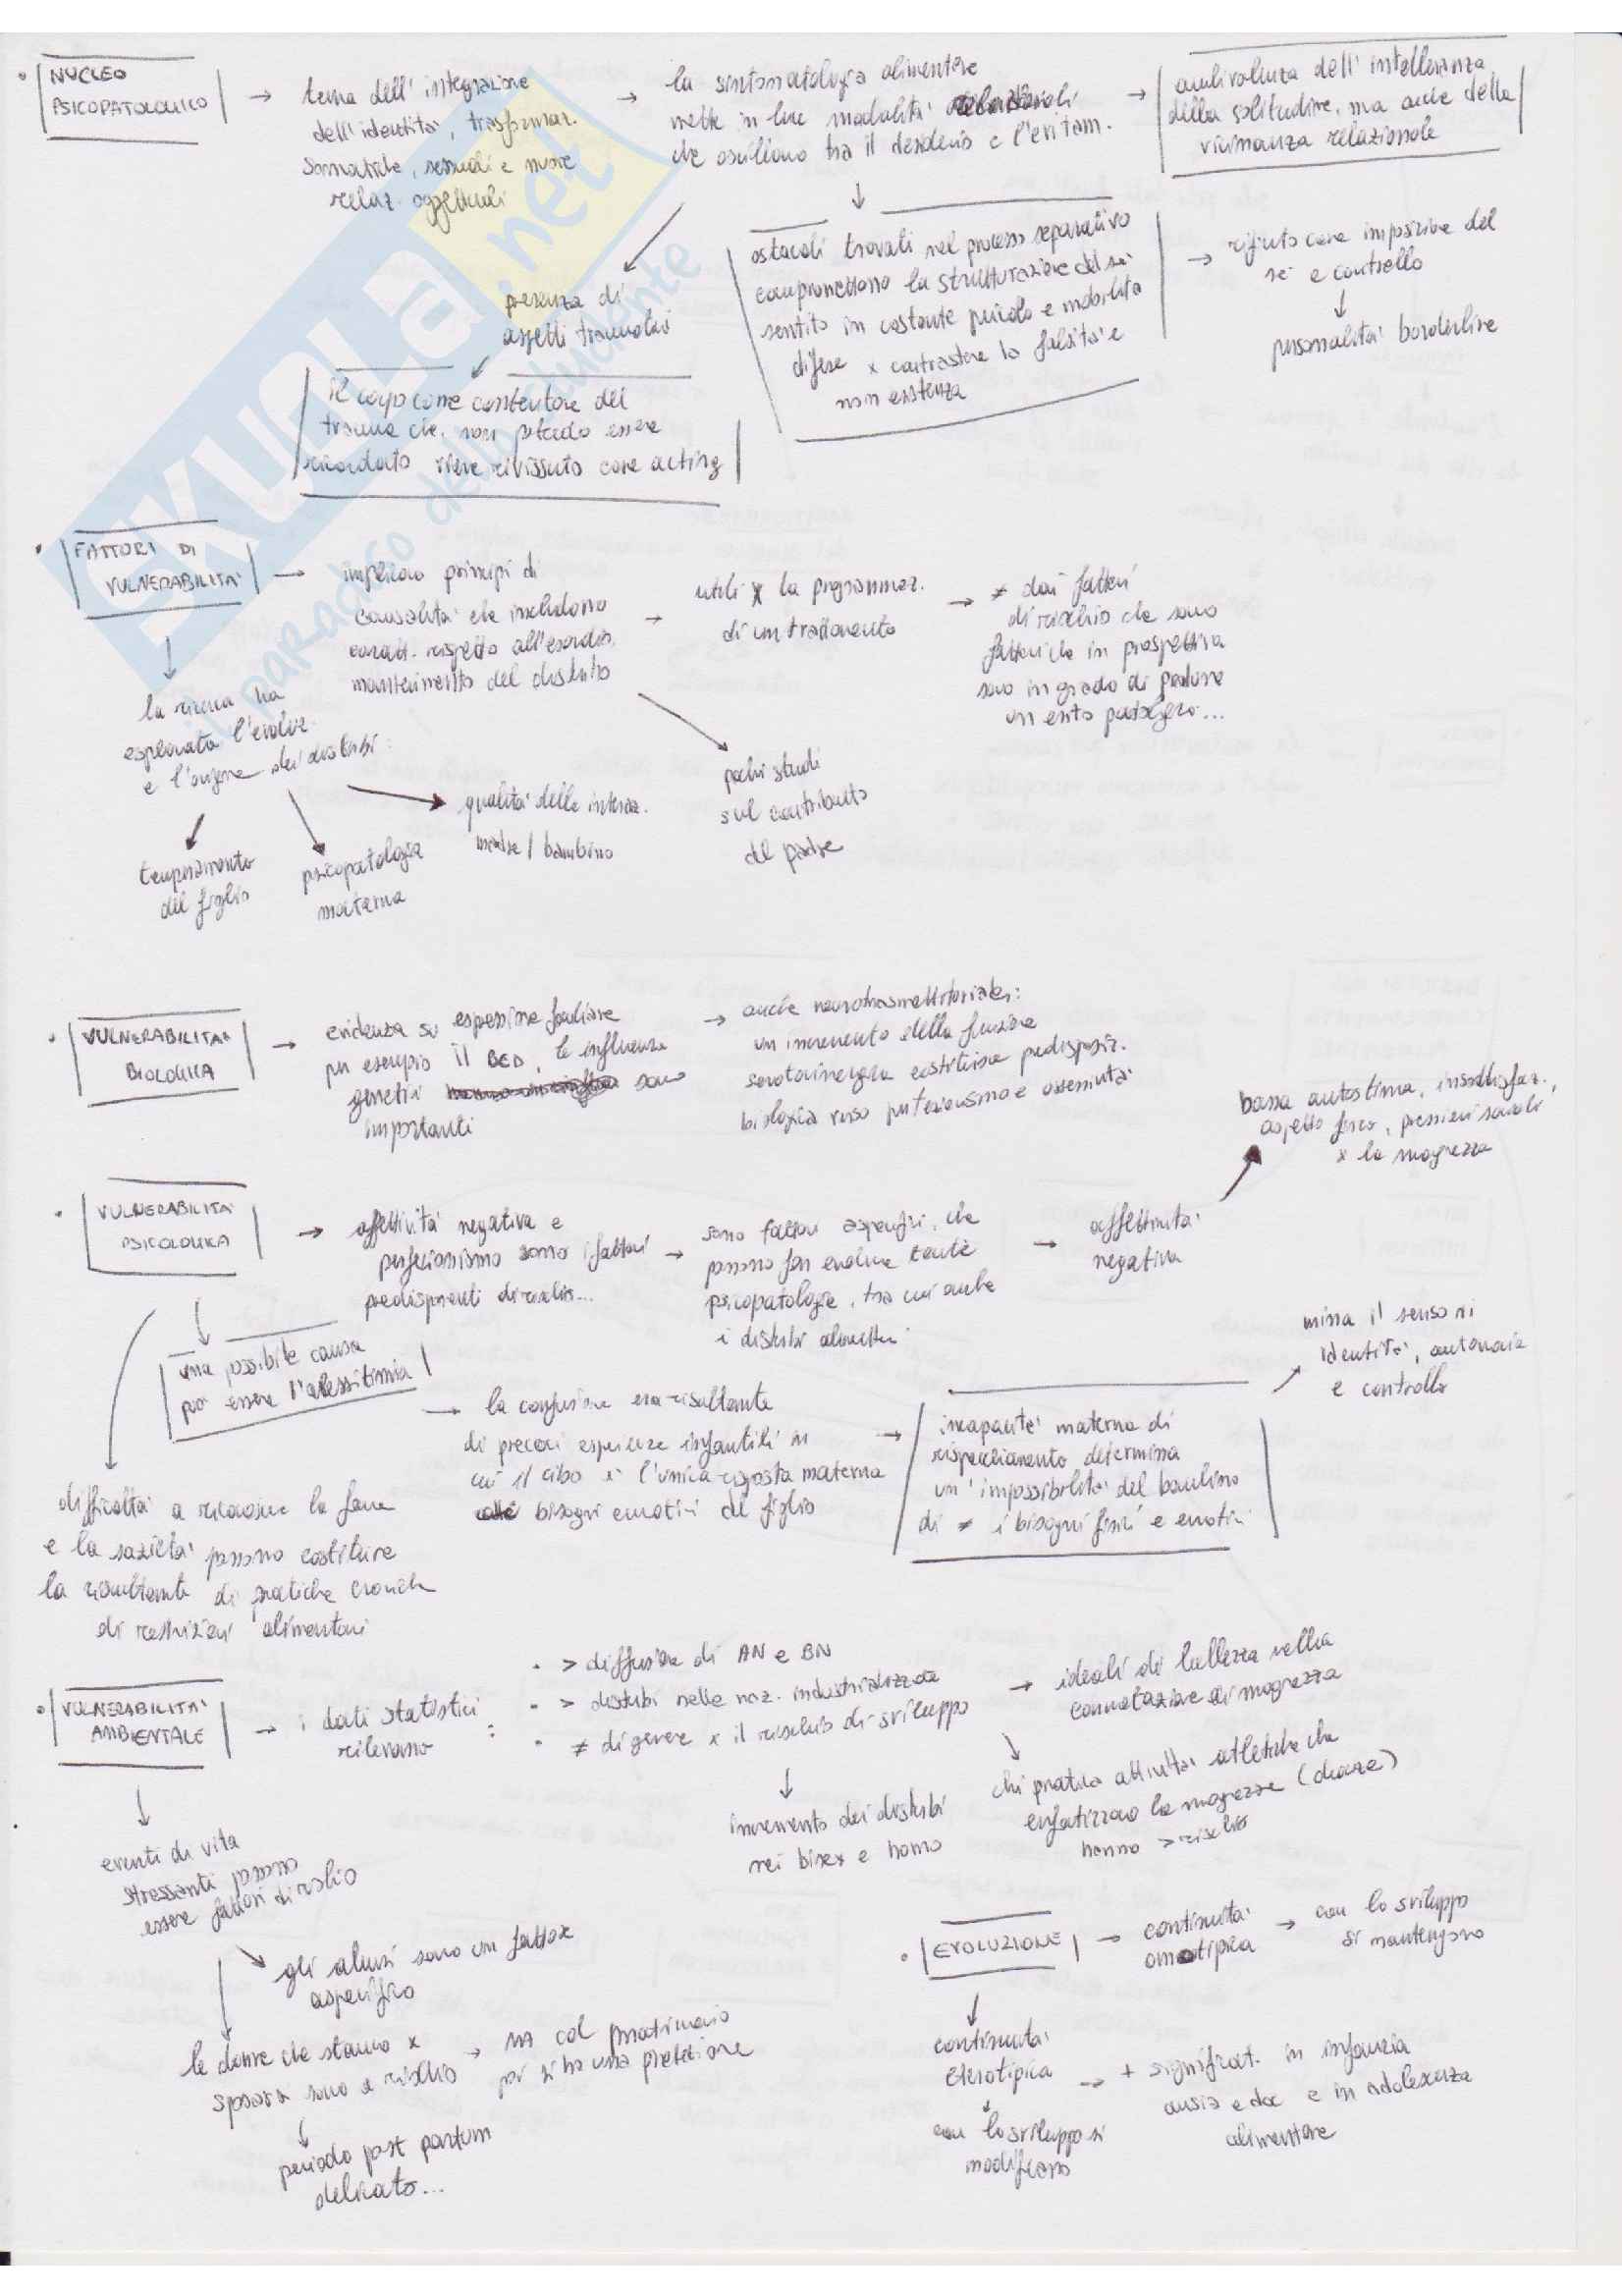 • NUCLEO
PSICOPATOLOGICO
→ tema dell'integrazione
dell'identità, trasformaz.
somatiche, sessuali e nuove
relaz. oggettuali
→ la sintomatologia alimentare
mette in luce modalità relazionali
che oscillano tra il desiderio e l'evitam.
→ ambivalenza dell'intolleranza
della solitudine, ma anche della
vicinanza relazionale
presenza di
aspetti traumatici
il corpo come contenitore del
trauma che, non potendo essere
ricordato viene rivissuto come acting
ostacoli trovati nel processo separativo
compromettono la strutturazione del sé
sentito in costante pericolo e mobilita
difese x contrastare la falsità e
non esistenza
→ rifiuto come imposizione del
sé e controllo
↓
personalità borderline
• FATTORI DI
VULNERABILITA'
→ implicano principi di
causalità che includono
caratt. rispetto all'esordio,
mantenimento del disturbo
→ utili x la programmaz.
di un trattamento
→ ≠ dai fattori
di rischio che sono
fattori che in prospettiva
sono in grado di predurre
un esito patogeno...
la ricerca ha
esplorato l'evoluz.
e l'origine dei disturbi:
temperamento
del figlio
psicopatologia
materna
qualità delle interaz.
madre/bambino
pochi studi
sul contributo
del padre
• VULNERABILITA'
BIOLOGICA
→ evidenza su espressione familiare
per esempio il BED, le influenze
genetiche sono
importanti
→ anche neurotrasmettitoriale:
un incremento della funzione
serotoninergica costituisce predisposiz.
biologica verso perfezionismo e ossessività
• VULNERABILITA'
PSICOLOGICA
→ affettività negativa e
perfezionismo sono i fattori
predisponenti di rischio...
→ sono fattori aspecifici, che
possono far evolvere tante
psicopatologie, tra cui anche
i disturbi alimentari
→ affettività
negativa
bassa autostima, insoddisfaz.,
aspetto fisico, pressioni sociali
x la magrezza
una possibile causa
può essere l'alessitimia
→ la confusione era risultante
di precoci esperienze infantili in
cui il cibo è l'unica risposta materna
bisogni emotivi del figlio
→ incapacità materna di
rispecchiamento determina
un'impossibilità del bambino
di ≠ i bisogni fisici e emotivi
mina il senso di
identità, autonomia
e controllo
difficoltà a riconoscere la fame
e la sazietà possono costituire
la risultante di pratiche croniche
di restrizioni alimentari
• VULNERABILITA'
AMBIENTALE
→ i dati statistici
rilevano :
• > diffusione di AN e BN
• > disturbi nelle naz. industrializzate
• ≠ di genere x il rischio di sviluppo
→ ideali di bellezza nella
connotazione di magrezza
chi pratica attività atletiche che
enfatizzano la magrezza (danza)
hanno > rischio
incremento dei disturbi
nei bisex e homo
eventi di vita
stressanti possono
essere fattori di rischio
gli abusi sono un fattore
aspecifico
le donne che stanno x
sposarsi sono a rischio
→ ma col matrimonio
poi si ha una protezione
periodo post partum
delicato...
• EVOLUZIONE
→ continuità
omotipica
→ con lo sviluppo
si mantengono
continuità
eterotipica
con lo sviluppo si
modificano
→ + significat. in infanzia
ansia e doc e in adolescenza
alimentare